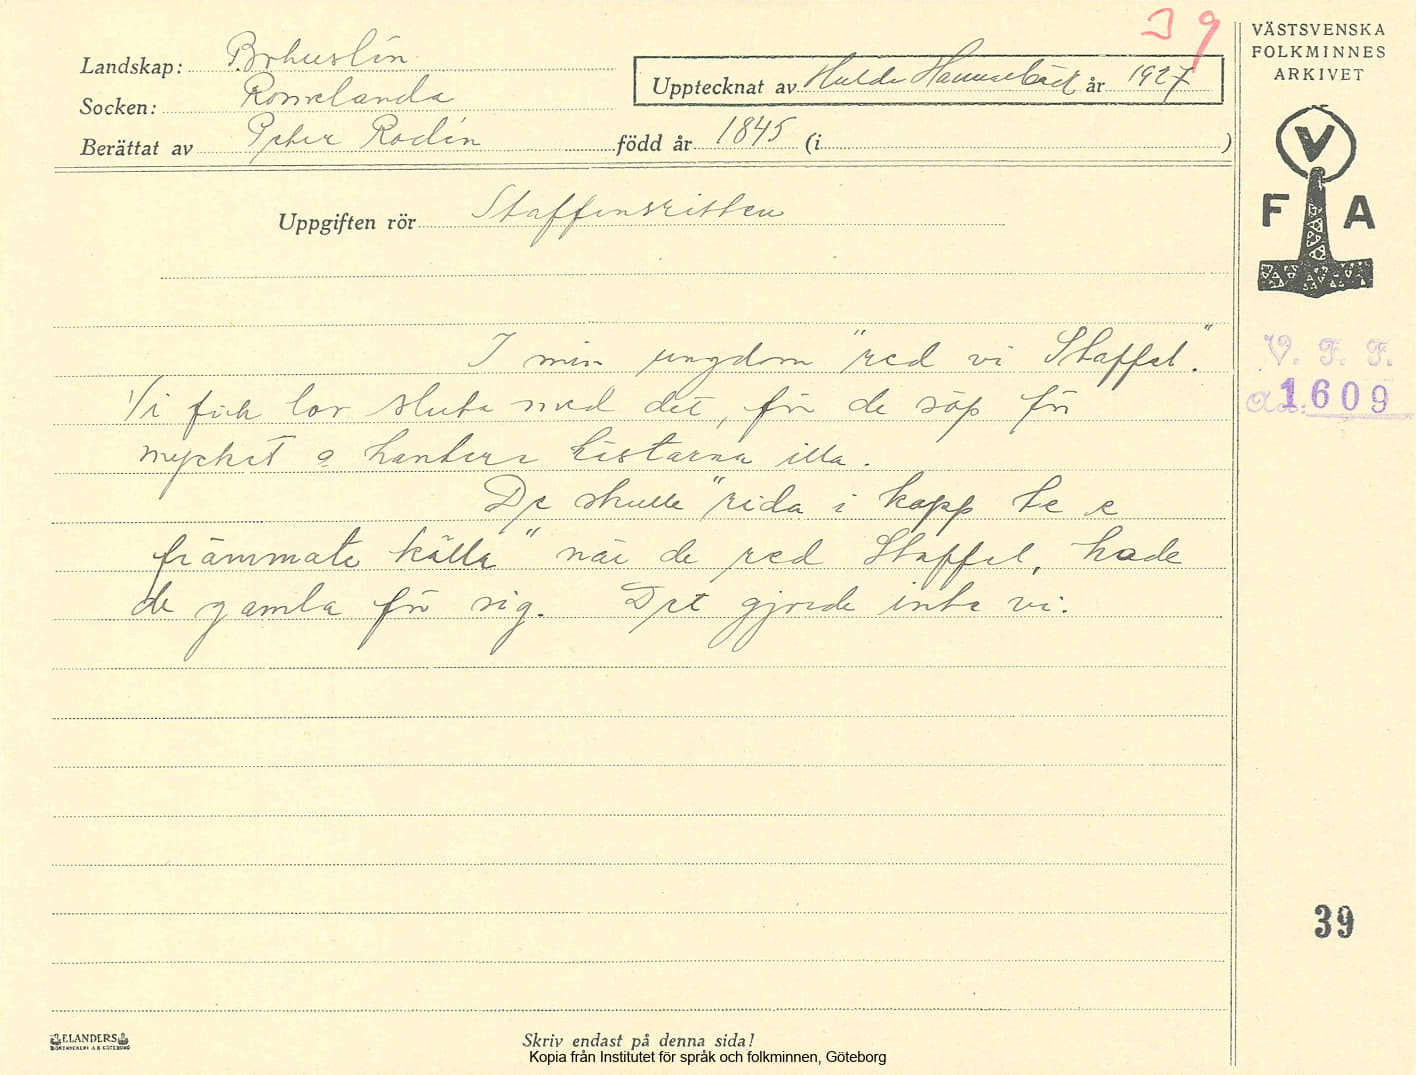 J 9
VÄSTSVENSKA
FOLKMINNES
ARKIVET
Landskap: Bohuslän
Upptecknat av Hulda Hammarbäck år 1927
Socken: Romelanda
Berättat av Peter Rodén född år 1845 (i )
V
F A
Uppgiften rör Staffansritten
I min ungdom "red vi Staffel".
Vi fick lov sluta med det, för de söp för
mycket o hantera hästarna illa.
De skulle "rida i kapp te e
främmate källa" när de red Staffel, hade
de gamla för sig. Det gjorde inte vi.
V. F. F.
1609
39
ELANDERS
BOKTRYCKERI A.B. GÖTEBORG
Skriv endast på denna sida!
Kopia från Institutet för språk och folkminnen, Göteborg